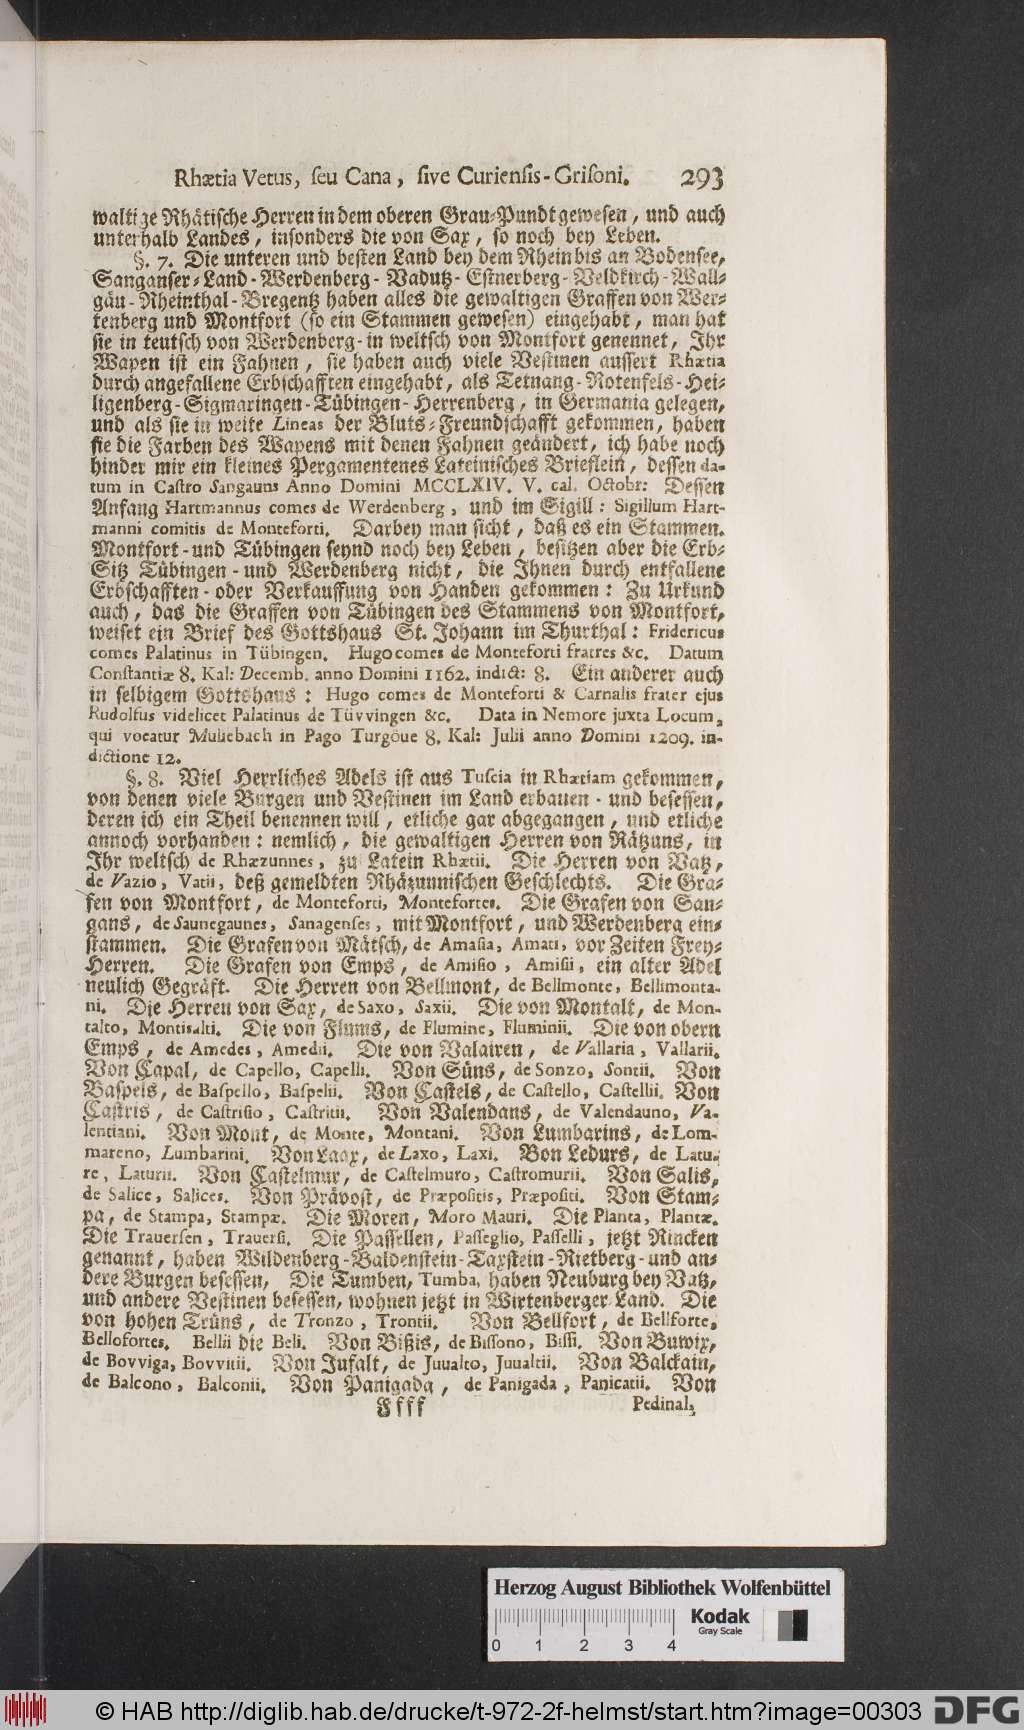 Rhætia Vetus, ſeu Cana, ſive Curienſis-Griſoni. 293
waltige Rhätische Herren in dem oberen Grau-Pundt gewesen, und auch
unterhalb Landes, insonders die von Sax, so noch bey Leben.
§. 7. Die unteren und besten Land bey dem Rhein bis an Bodensee,
Sanganser-Land-Werdenberg-Vadutz-Estnerberg-Veldkirch-Wall-
gäu-Rheinthal-Bregentz haben alles die gewaltigen Graffen von Wer-
tenberg und Montfort (so ein Stammen gewesen) eingehabt, man hat
sie in teutsch von Werdenberg-in weltsch von Montfort genennet, Ihr
Wapen ist ein Fahnen, sie haben auch viele Vestinen aussert Rhætia
durch angefallene Erbschafften eingehabt, als Tetnang-Rotenfels-Hei-
ligenberg-Sigmaringen-Tübingen-Herrenberg, in Germania gelegen,
und als sie in weite Lineas der Bluts-Freundschafft gekommen, haben
sie die Farben des Wapens mit denen Fahnen geändert, ich habe noch
hinder mir ein kleines Pergamentenes Lateinisches Brieflein, dessen da-
tum in Caſtro Sangauns Anno Domini MCCLXIV. V. cal. Octobr: Dessen
Anfang Hartmannus comes de Werdenberg, und im Sigill: Sigillum Hart-
manni comitis de Monteforti. Darbey man sicht, daß es ein Stammen.
Montfort-und Tübingen seynd noch bey Leben, besitzen aber die Erb-
Sitz Tübingen-und Werdenberg nicht, die Ihnen durch entfallene
Erbschafften-oder Verkauffung von Handen gekommen: Zu Urkund
auch, das die Graffen von Tübingen des Stammens von Montfort,
weiset ein Brief des Gottshaus St. Johann im Thurthal: Fridericus
comes Palatinus in Tübingen. Hugo comes de Monteforti fratres &c. Datum
Conſtantiæ 8. Kal: Decemb. anno Domini 1162. indict: 8. Ein anderer auch
in selbigem Gottshaus: Hugo comes de Monteforti & Carnalis frater ejus
Rudolfus videlicet Palatinus de Tüvvingen &c. Data in Nemore juxta Locum,
qui vocatur Muliebach in Pago Turgöue 8. Kal: Julii anno Domini 1209. in-
dictione 12.
§. 8. Viel Herrliches Adels ist aus Tuſcia in Rhætiam gekommen,
von denen viele Burgen und Vestinen im Land erbauen-und besessen,
deren ich ein Theil benennen will, etliche gar abgegangen, und etliche
annoch vorhanden: nemlich, die gewaltigen Herren von Rätzuns, in
Ihr weltsch de Rhæzunnes, zu Latein Rhætii. Die Herren von Vatz,
de Vazio, Vatii, deß gemeldten Rhäzunnischen Geschlechts. Die Gra-
fen von Montfort, de Monteforti, Montefortes. Die Grafen von San-
gans, de Saunegaunes, Sanagenſes, mit Montfort, und Werdenberg ein-
stammen. Die Grafen von Mätsch, de Amaſia, Amati, vor Zeiten Frey-
Herren. Die Grafen von Emps, de Amiſio, Amiſii, ein alter Adel
neulich Gegräft. Die Herren von Bellmont, de Bellmonte, Bellimonta-
ni. Die Herren von Sax, de Saxo, Saxii. Die von Montalt, de Mon-
talto, Montisalti. Die von Flums, de Flumine, Fluminii. Die von obern
Emps, de Amedes, Amedii. Die von Valairen, de Vallaria, Vallarii.
Von Capal, de Capello, Capelli. Von Süns, de Sonzo, Sontii. Von
Baspels, de Baſpello, Baſpelii. Von Castels, de Caſtello, Caſtellii. Von
Castris, de Caſtriſio, Caſtritii. Von Valendans, de Valendauno, Va-
lentiani. Von Mont, de Monte, Montani. Von Lumbarins, de Lom-
mareno, Lumbarini. Von Laax, de Laxo, Laxi. Von Ledurs, de Latu-
re, Laturii. Von Castelmur, de Caſtelmuro, Caſtromurii. Von Salis,
de Salice, Salices. Von Prävost, de Præpoſitis, Præpoſiti. Von Stam-
pa, de Stampa, Stampæ. Die Moren, Moro Mauri. Die Planta, Plantæ.
Die Traverſen, Traverſi. Die Passellen, Paſſeglio, Paſſelli, jetzt Rincken
genannt, haben Wildenberg-Baldenstein-Taxstein-Rietberg-und an-
dere Burgen besessen, Die Tumben, Tumba, haben Neuburg bey Vatz,
und andere Vestinen besessen, wohnen jetzt in Wirtenberger Land. Die
von hohen Trüns, de Tronzo, Trontii. Von Bellfort, de Bellforte,
Bellofortes. Bellii die Beli. Von Bißis, de Biſſono, Biſſi. Von Buwix,
de Bovviga, Bovvitii. Von Jufalt, de Juualto, Juualtii. Von Balckain,
de Balcono, Balconii. Von Panigada, de Panigada, Panicatii. Von
Ffff Pedinal,
Herzog August Bibliothek Wolfenbüttel
Kodak
Gray Scale
0 1 2 3 4
© HAB http://diglib.hab.de/drucke/t-972-2f-helmst/start.htm?image=00303 DFG